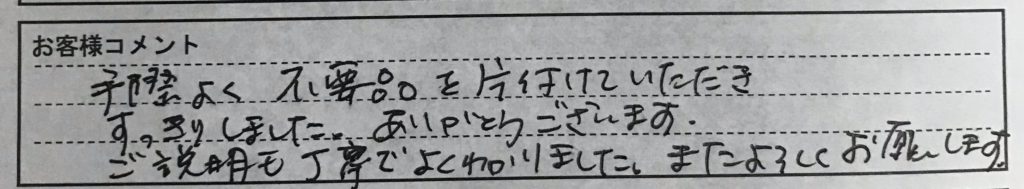 お客様コメント
手際よく 不要品を片付けていただき
すっきりしました。ありがとうございます.
ご説明も丁寧でよくわかりました。またよろしくお願いします。